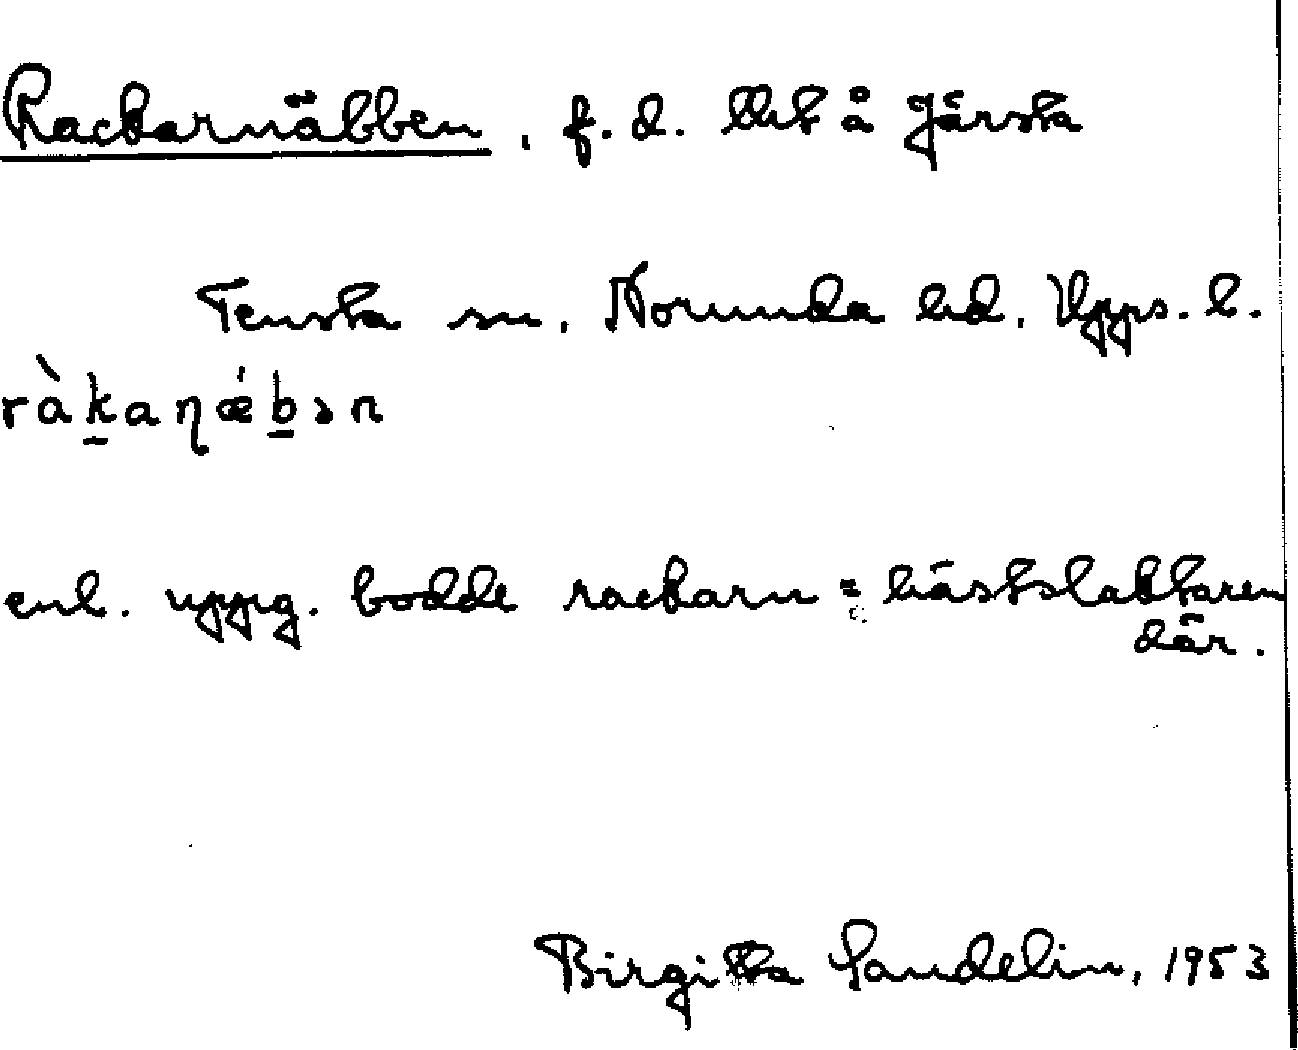 Rackarnäbben, f.d. lht å Järsta
Tensta sn. Norunda hd. Upps. l.
ràk̠aɳǽb̠ən
enl. uppg. bodde rackarn = hästslaktaren
där.
Birgitta Sandelin, 1953